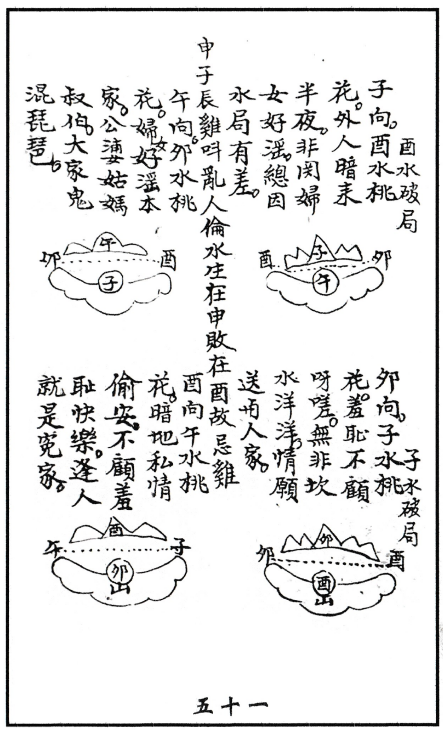 酉水破局
子向。酉水桃
花。外人暗来
半夜。非関婦
女好淫總因
水局有差。
申子辰雞叫亂人倫水生在申敗在酉故忌雞
午向。夘水桃
花。婦女好淫本
家。公婆姑媽
叔伯。大家鬼
混琵琶。
酉 子 夘
午
夘 午 酉
子
子水破局
夘向。子水桃
花。羞恥不顧
呀嗟。無非坎
水洋洋。情願
送人家。
酉向午水桃
花。暗地私情
偷安。不顧羞
恥快樂。逢人
就是冤家。
夘 夘 酉
酉
山
午 酉 子
夘
山
五十一